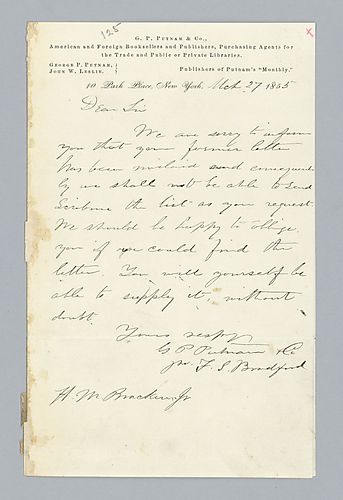 125
x
G. P. Putnam & Co.,
American and Foreign Booksellers and Publishers, Purchasing Agents for
the Trade and Public or Private Libraries.
George P. Putnam,
John W. Leslie.
Publishers of Putnam's "Monthly."
10 Park Place, New York, Mch 27 1855
Dear Sir
We are sorry to inform
you that your former letter
has been mislaid and consequent
ly we shall not be able to send
Scribner the list as your request.
We should be happy to oblige
you if we could find the
letter. You will yourself be
able to supply it, without
doubt.
Yours respy
G P Putnam & Co
pr F. S. Bradford
H. M.